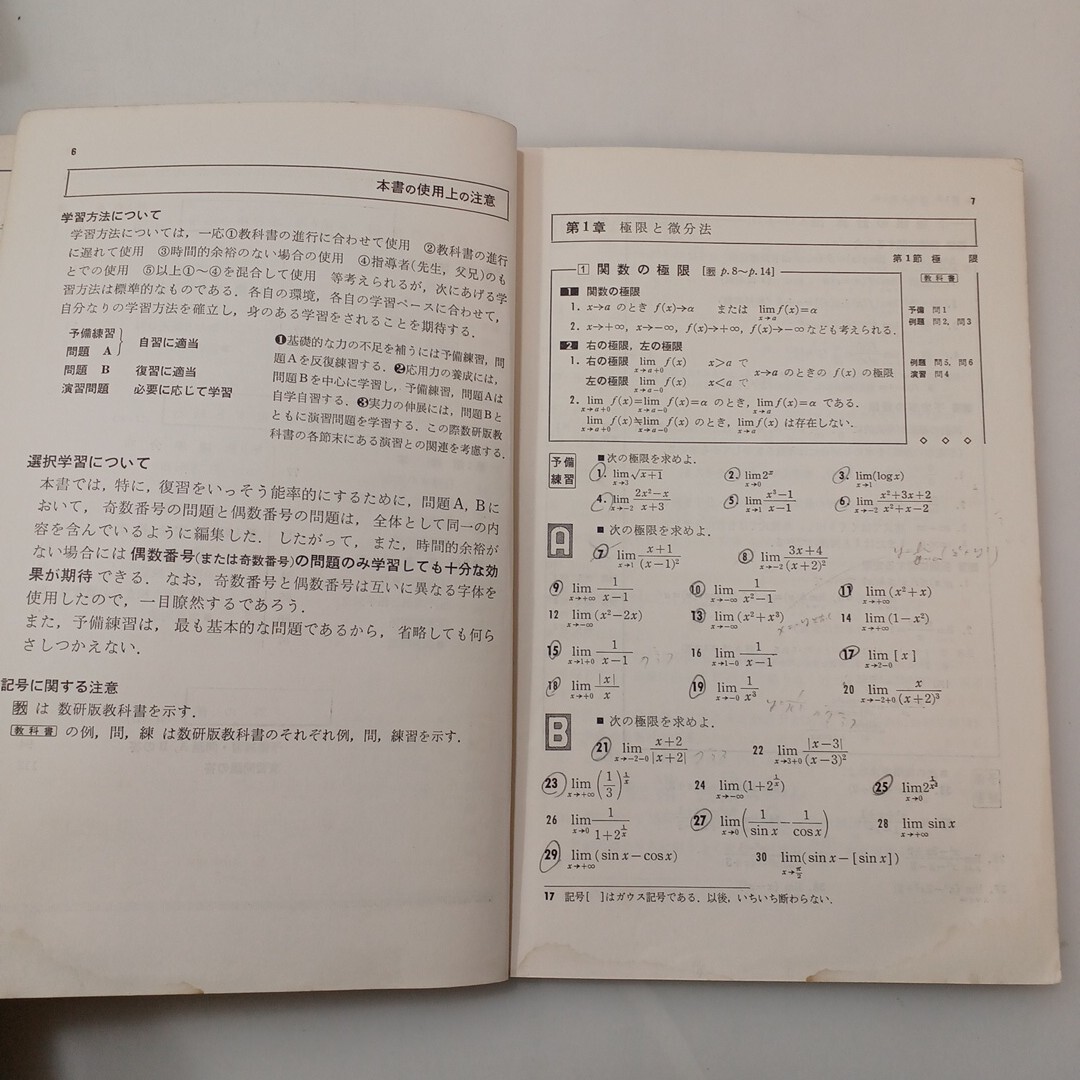 6
本書の使用上の注意
学習方法について
学習方法については，一応①教科書の進行に合わせて使用　②教科書の進行
に遅れて使用　③時間的余裕のない場合の使用　④指導者(先生，父兄)のも
とでの使用　⑤以上①～④を混合して使用　等考えられるが，次にあげる学
習方法は標準的なものである．各自の環境，各自の学習ペースに合わせて，
自分なりの学習方法を確立し，身のある学習をされることを期待する．
予備練習
問題　A
自習に適当
問題　B　復習に適当
演習問題　必要に応じて学習
❶基礎的な力の不足を補うには予備練習，問
題Aを反復練習する．❷応用力の養成には，
問題Bを中心に学習し，予備練習，問題Aは
自学自習する．❸実力の伸展には，問題Bと
ともに演習問題を学習する．この際数研版教
科書の各節末にある演習との関連を考慮する．
選択学習について
本書では，特に，復習をいっそう能率的にするために，問題A，Bに
おいて，奇数番号の問題と偶数番号の問題は，全体として同一の内
容を含んでいるように編集した．したがって，また，時間的余裕が
ない場合には偶数番号(または奇数番号)の問題のみ学習しても十分な効
果が期待できる．なお，奇数番号と偶数番号は互いに異なる字体を
使用したので，一目瞭然するであろう．
また，予備練習は，最も基本的な問題であるから，省略しても何ら
さしつかえない．
記号に関する注意
教 は 数研版教科書を示す．
教科書 の例，問，練 は数研版教科書のそれぞれ例，問，練習を示す．
7
第1章　極限と微分法
第1節 極　限
1 関数の極限 [教 p.8～p.14]
教科書
1 関数の極限
1. x→a のとき f(x)→α　または　lim_{x→a} f(x)=α
予備 問1
2. x→+∞，x→−∞，f(x)→+∞，f(x)→−∞なども考えられる．
例題 問2，問3
2 右の極限，左の極限
1. 右の極限　lim_{x→a+0} f(x)　x>a で
左の極限　lim_{x→a−0} f(x)　x<a で
x→a のときの f(x) の極限
例題 問5，問6
演習 問4
2. lim_{x→a+0} f(x)=lim_{x→a−0} f(x)=α のとき，lim_{x→a} f(x)=α である．
lim_{x→a+0} f(x)≒lim_{x→a−0} f(x) のとき，lim_{x→a} f(x) は存在しない．
◇ ◇ ◇
予備練習
■次の極限を求めよ．
1. lim_{x→3} √(x+1)　2. lim_{x→0} 2^x　3. lim_{x→1} (log x)
4. lim_{x→−2} (2x²−x)/(x+3)　5. lim_{x→1} (x³−1)/(x−1)　6. lim_{x→−2} (x²+3x+2)/(x²+x−2)
A
■次の極限を求めよ．
7 lim_{x→1} (x+1)/(x−1)²　8 lim_{x→−2} (3x+4)/(x+2)²
9 lim_{x→+∞} 1/(x−1)　10 lim_{x→−∞} 1/(x²−1)　11 lim_{x→+∞} (x²+x)
12 lim_{x→−∞} (x²−2x)　13 lim_{x→−∞} (x²+x³)　14 lim_{x→+∞} (1−x²)
15 lim_{x→1+0} 1/(x−1)　16 lim_{x→1−0} 1/(x−1)　17 lim_{x→2−0} [x]
18 lim_{x→+0} |x|/x　19 lim_{x→−0} 1/x³　20 lim_{x→−2+0} x/(x+2)³
B
■次の極限を求めよ．
21 lim_{x→−2−0} (x+2)/|x+2|　22 lim_{x→3+0} |x−3|/(x−3)²
23 lim_{x→+∞} (1/3)^{1/x}　24 lim_{x→−∞} (1+2^{1/x})　25 lim_{x→0} 2^{1/x³}
26 lim_{x→0} 1/(1+2^{1/x})　27 lim_{x→0} (1/sin x − 1/cos x)　28 lim_{x→+∞} sin x
29 lim_{x→+∞} (sin x−cos x)　30 lim_{x→π/2} (sin x−[sin x])
17 記号[　]はガウス記号である．以後，いちいち断わらない．